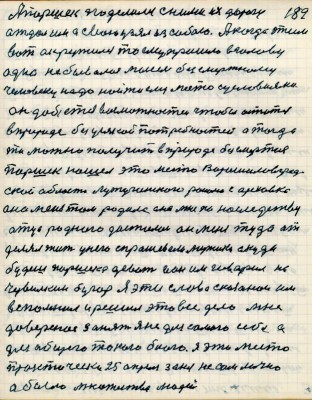 189
А Паршек э поделился с ними их дорогу
а тогда он а своих узял из собою. А когда этим
вот окружился то ему пришло в голову
одна небывалая мысль бессмертному
человеку надо найти ему место с условиями
он добьется возможности чтобы остатся
в природе без усякой потребности а тогда
то можно получить в природе бессмертие
Паршек нашел это место Ворошиловград-
ской области Лутугинского района с Ореховка
она меня там родила она же по наследству
отца родного достался он меня туда от
делял жить у него спрашивали мужики а куда
будеш Паршека девать и он им говорил на
Чувилкин бугор Я эти слова сказаные им
вспомнил и решил это все дело мне
доверено занять я не для самого себя а
для общего такого блага. Я это место
практически 25 апреля занял не сам лично
а было множество людей